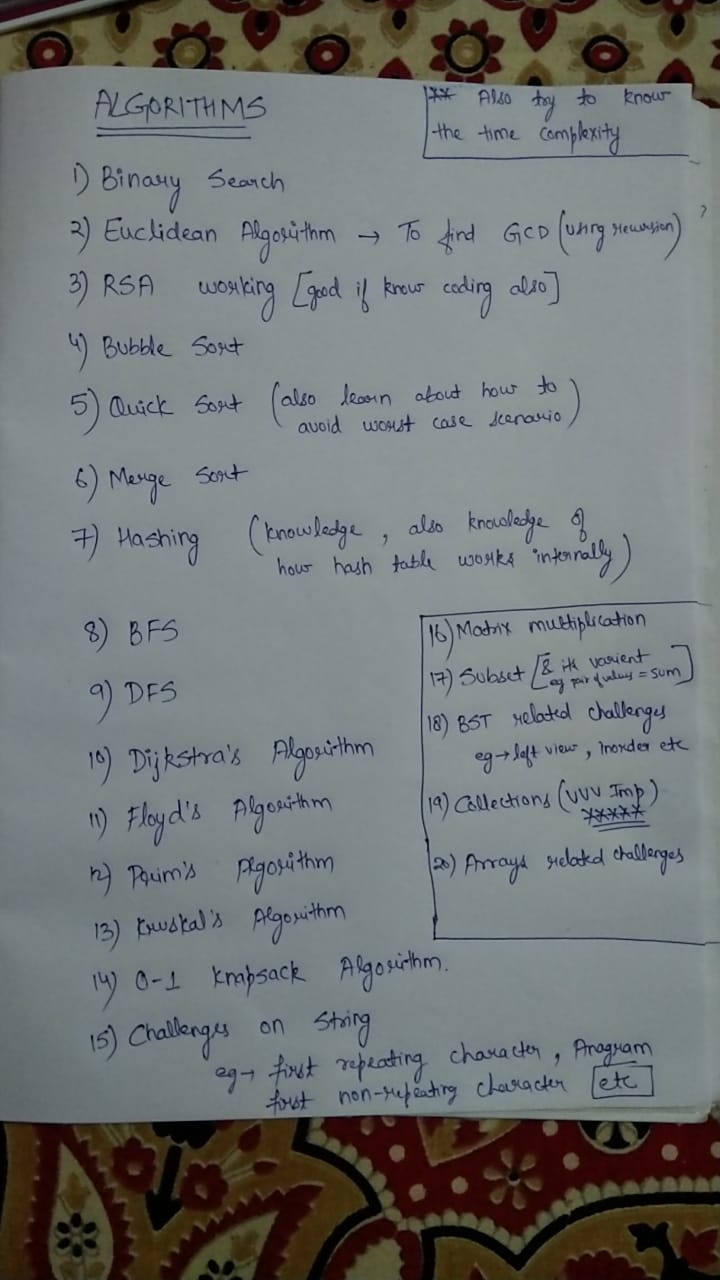 ALGORITHMS
** Also try to know
the time complexity
1) Binary Search
2) Euclidean Algorithm → To find GCD (using recursion)
3) RSA working [good if know coding also]
4) Bubble Sort
5) Quick Sort (also learn about how to
avoid worst case scenario)
6) Merge Sort
7) Hashing (knowledge, also knowledge of
how hash table works internally)
8) BFS
9) DFS
10) Dijkstra's Algorithm
11) Floyd's Algorithm
12) Prim's Algorithm
13) Kruskal's Algorithm
14) 0-1 Knapsack Algorithm.
15) Challenges on String
eg→ first repeating character, Anagram
first non-repeating character etc
16) Matrix multiplication
17) Subset [& its varient
eg pair of values = sum]
18) BST related challenges
eg→ left view, inorder etc
19) Collections (VVV Imp)
*****
20) Arrays related challenges